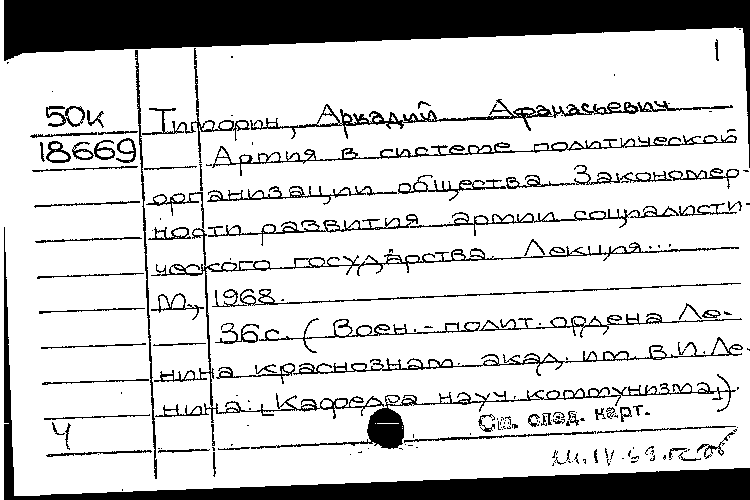 1
50к Тиморин, Аркадий Афанасьевич
18669 Армия в системе политической
организации общества. Закономер-
ности развития армии социалисти-
ческого государства. Лекция...
М., 1968.
36с. (Воен.-полит. ордена Ле-
нина краснознам. акад. им. В.И. Ле-
нина. [Кафедра науч. коммунизма]).
Ч См. след. карт.